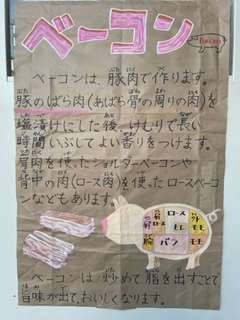 ベーコン
ベーコンは、豚肉で作ります。
豚のばら肉(あばら骨の周りの肉)を
塩漬けにした後、けむりで長い
時間いぶしてよい香りをつけます。
肩肉を使ったショルダーベーコンや
背中の肉(ロース肉)を使ったロースベーコン
などもあります。
肩 ロース 外
肩 ロース ヒレ モモ
腕 バラ モモ
ベーコンは炒めて脂を出すことで
旨味が出て、おいしくなります。